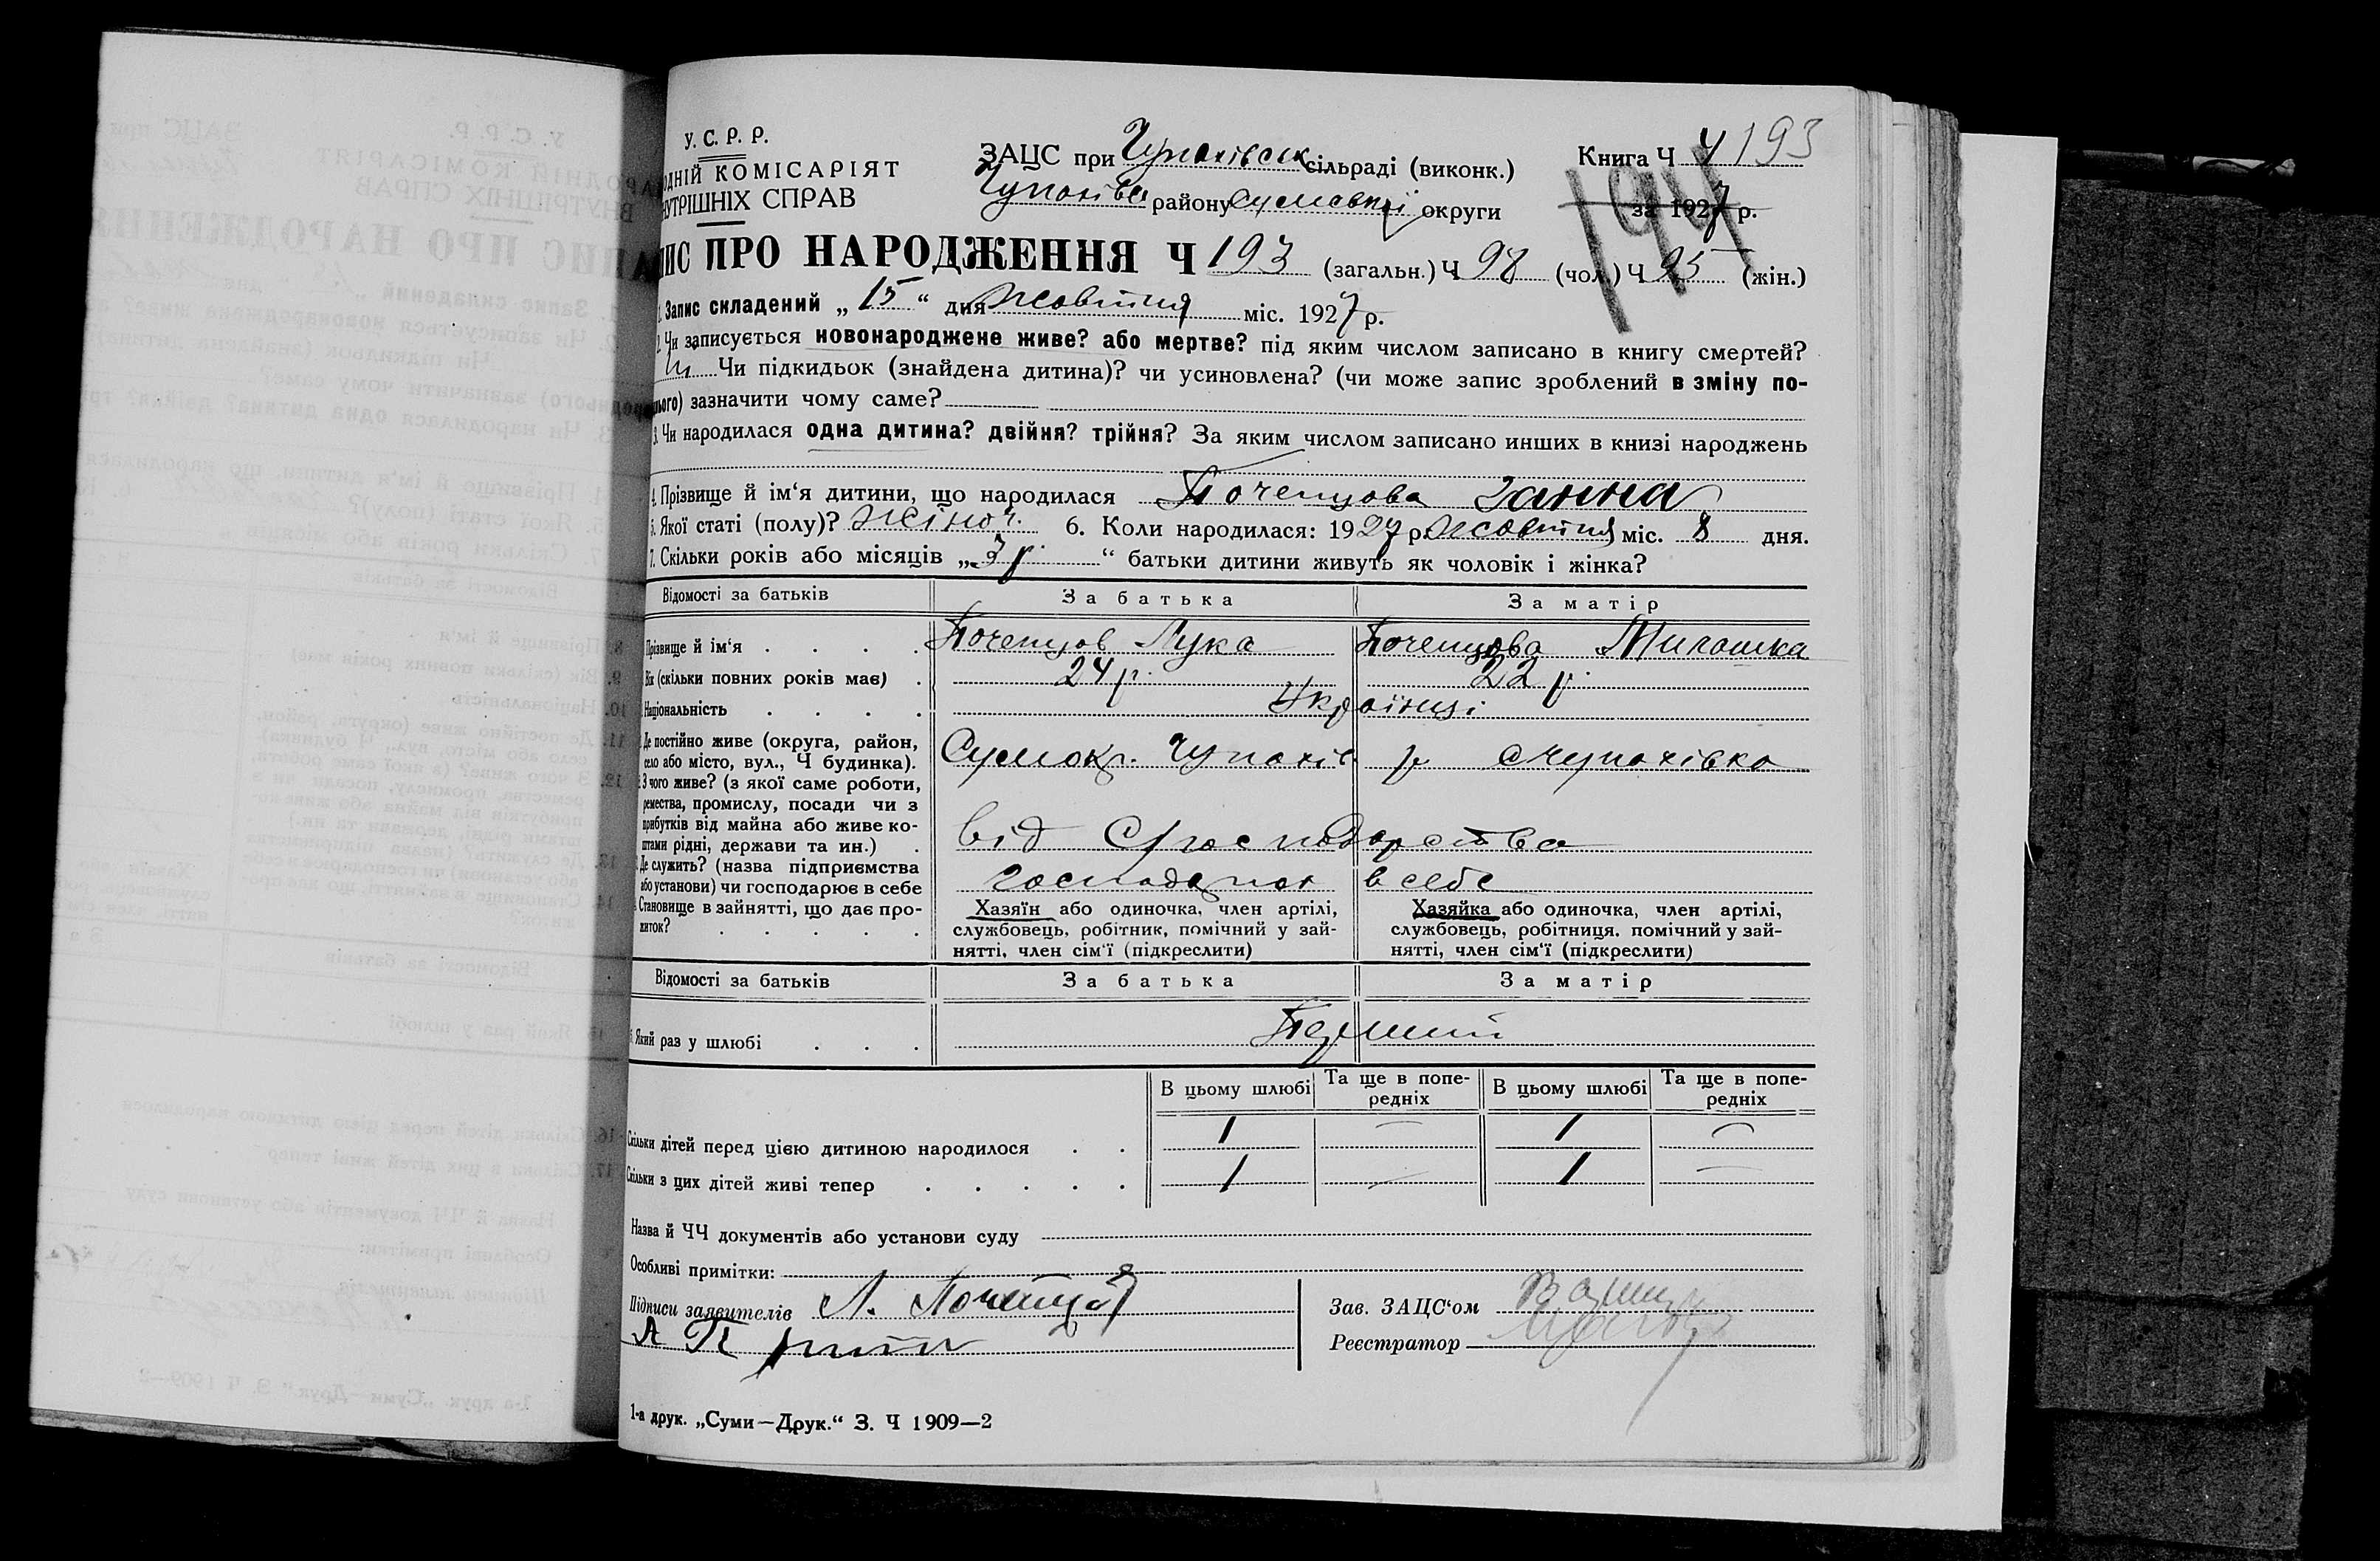 У. С. Р. Р.
ОДНІЙ КОМІСАРІЯТ
НУТРІШНІХ СПРАВ
ЗАЦС при Чупахівськ сільраді (виконк.)
Чупахівс району Сумської округи
Книга Ч 4 193
194
за 1927 р.
ПИС ПРО НАРОДЖЕННЯ Ч 193 (загальн.) Ч 98 (чол.) Ч 95 (жін.)
1. Запис складений „ 15 “ дня Жовтня міс. 1927 р.
2. Чи записується новонароджене живе? або мертве? під яким числом записано в книгу смертей?
Чи підкидьок (знайдена дитина)? чи усиновлена? (чи може запис зроблений в зміну по-
нього) зазначити чому саме?
3. Чи народилася одна дитина? двійня? трійня? За яким числом записано инших в книзі народжень
4. Прізвище й ім‘я дитини, що народилася Почепцова Ганна
5. Якої статі (полу)? жіноч. 6. Коли народилася: 1927 р. Жовтня міс. 8 дня.
7. Скільки років або місяців „ 3 р. “ батьки дитини живуть як чоловік і жінка?
Відомості за батьків За батька За матір
Прізвище й ім‘я . . . . Почепцов Лука Почепцова Милашка
Вік (скільки повних років має) . 24 р. 22 р.
Національність . . . . Українці
Де постійно живе (округа, район,
село або місто, вул., Ч будинка). Сум окр. Чупахів р с Чупахівка
З чого живе? (з якої саме роботи,
ремества, промислу, посади чи з
прибутків від майна або живе ко-
штами рідні, держави та ин.) . від С господарства
Де служить? (назва підприємства
або установи) чи господарює в себе в себе
Становище в зайнятті, що дає про-
житок? . . . . .
Хазяїн або одиночка, член артілі,
службовець, робітник, помічний у зай-
нятті, член сім‘ї (підкреслити)
Хазяйка або одиночка, член артілі,
службовець, робітниця, помічний у зай-
нятті, член сім‘ї (підкреслити)
Відомості за батьків За батька За матір
Який раз у шлюбі . . . Перший
В цьому шлюбі Та ще в попе-редніх В цьому шлюбі Та ще в попе-редніх
Скільки дітей перед цією дитиною народилося . . 1 — 1 —
Скільки з цих дітей живі тепер . . . . . 1 — 1 —
Назва й ЧЧ документів або установи суду
Особливі примітки:
Підписи заявителів Л. Почепцов
Зав. ЗАЦС‘ом
Реєстратор
1-а друк. „Суми—Друк.“ З. Ч 1909—2